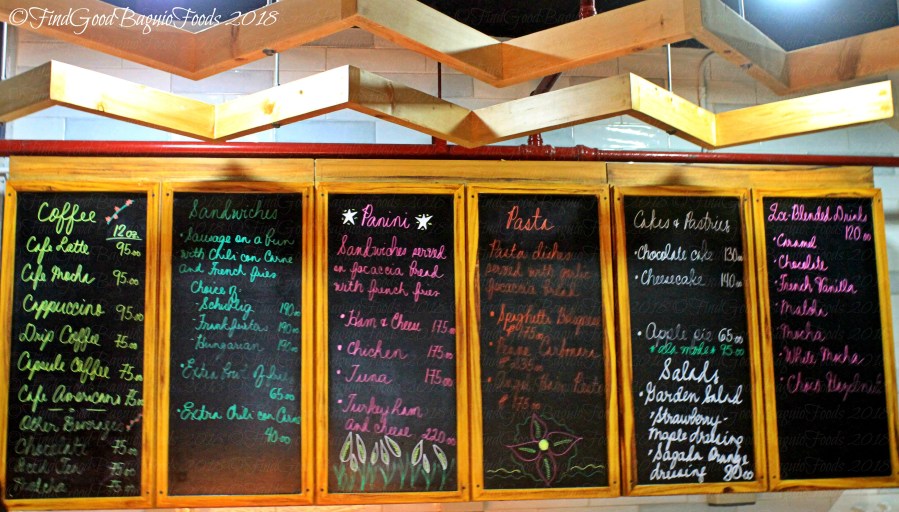 ©FindGoodBaguioFoods 2018
Coffee
12oz.
Cafe Latte 95.00
Cafe Mocha 95.00
Cappuccino 95.00
Drip Coffee 75.00
Capsule Coffee 75.00
Cafe Americano 75.00
Other Beverages
Chocolate 75.00
75.00
Matcha 75.00
Sandwiches
• Sausage on a bun
with Chili con Carne
and French fries
Choice of:
- Schublig 190.00
- Frankfurters 190.00
- Hungarian 190.00
• Extra Fruit of
65.00
• Extra Chili con Carne
40.00
Panini
Sandwiches served
on focaccia bread
with french fries
• Ham & Cheese 175.00
• Chicken 175.00
• Tuna 175.00
• Turkey Ham
and cheese 220.00
Pasta
Pasta dishes
served with garlic
focaccia bread
• Spaghetti Bolognese
175.00
• Penne Carbonara
175.00
Pasta
175.00
Cakes & Pastries
• Chocolate cake 130.00
• Cheesecake 140.00
• Apple pie 65.00
*ala mode* 95.00
Salads
• Garden Salad
• Strawberry-
Maple dressing
• Sagada Orange
dressing 80.00
Ice-Blended Drinks
120.00
• Caramel
• Chocolate
• French Vanilla
• Matcha
• Mocha
• White Mocha
• Choco Hazelnut
©FindGoodBaguioFoods 2018